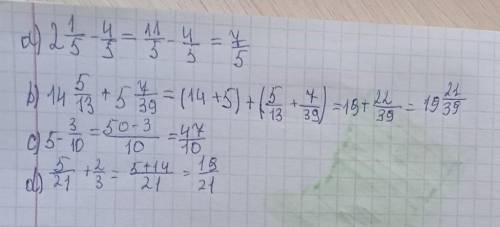 a) 2 1/5 - 4/5 = 11/5 - 4/5 = 7/5
b) 14 5/13 + 5 7/39 = (14+5) + (5/13 + 7/39) = 19 + 22/39 = 19 21/39
c) 5 - 3/10 = 50-3/10 = 47/10
d) 5/21 + 2/3 = 5+14/21 = 19/21